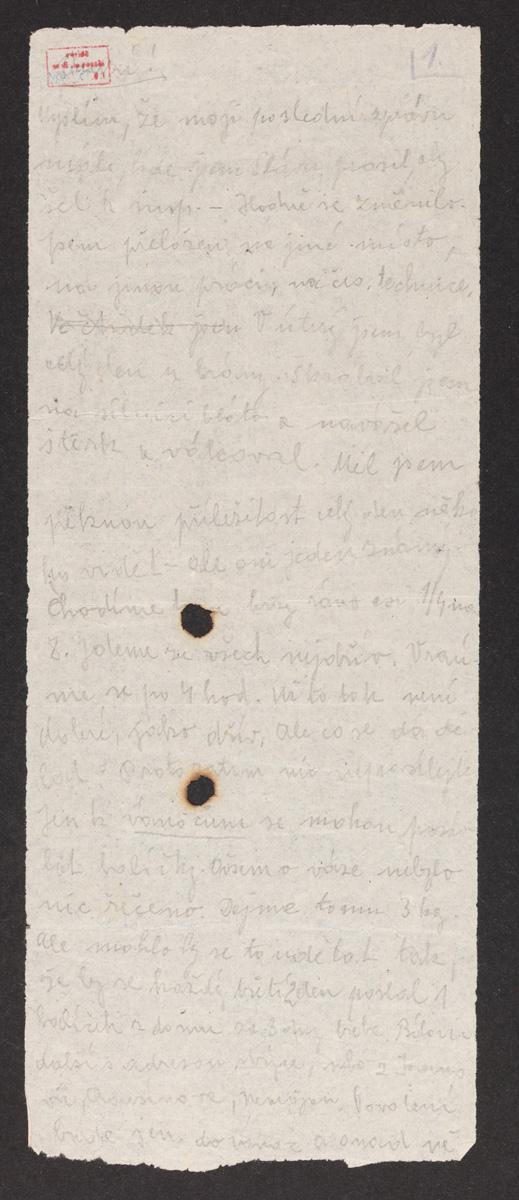 1.
Myslím, že moji poslední zprávu
máte, kde jsem psal, prosil, aby
šel k insp. – Hodně se změnilo.
Jsem přeložen na jiné místo,
na jinou práci, na čas. technice.
Ve čtvrtek jsem V úterý jsem byl
celý den u brány. Škrabal jsem
na silnici bláto a navážel
štěrk a válcoval. Měl jsem
pěknou příležitost celý den někó
ho vidět – ale ani jeden známý.
Chodíme brány ráno asi 1/4 na
8. Jdeme ze všech nejdřív. Vrací
me se po 4 hod. Už to tak není
dobré, jako dřív. Ale co se dá dě
lat. Proto zatím nic neposílejte
Jen k vánocům se mohou poso
lat balíčky. Ovšem o váze nebylo
nic řečeno. Dejme tomu 3 kg.
Ale mohlo by se to udělat tak,
že by se každý třetí den poslal 1
balíček z domu se 3 kg
další s adresou
Povolení
bude jen do vánoc a onoud ně